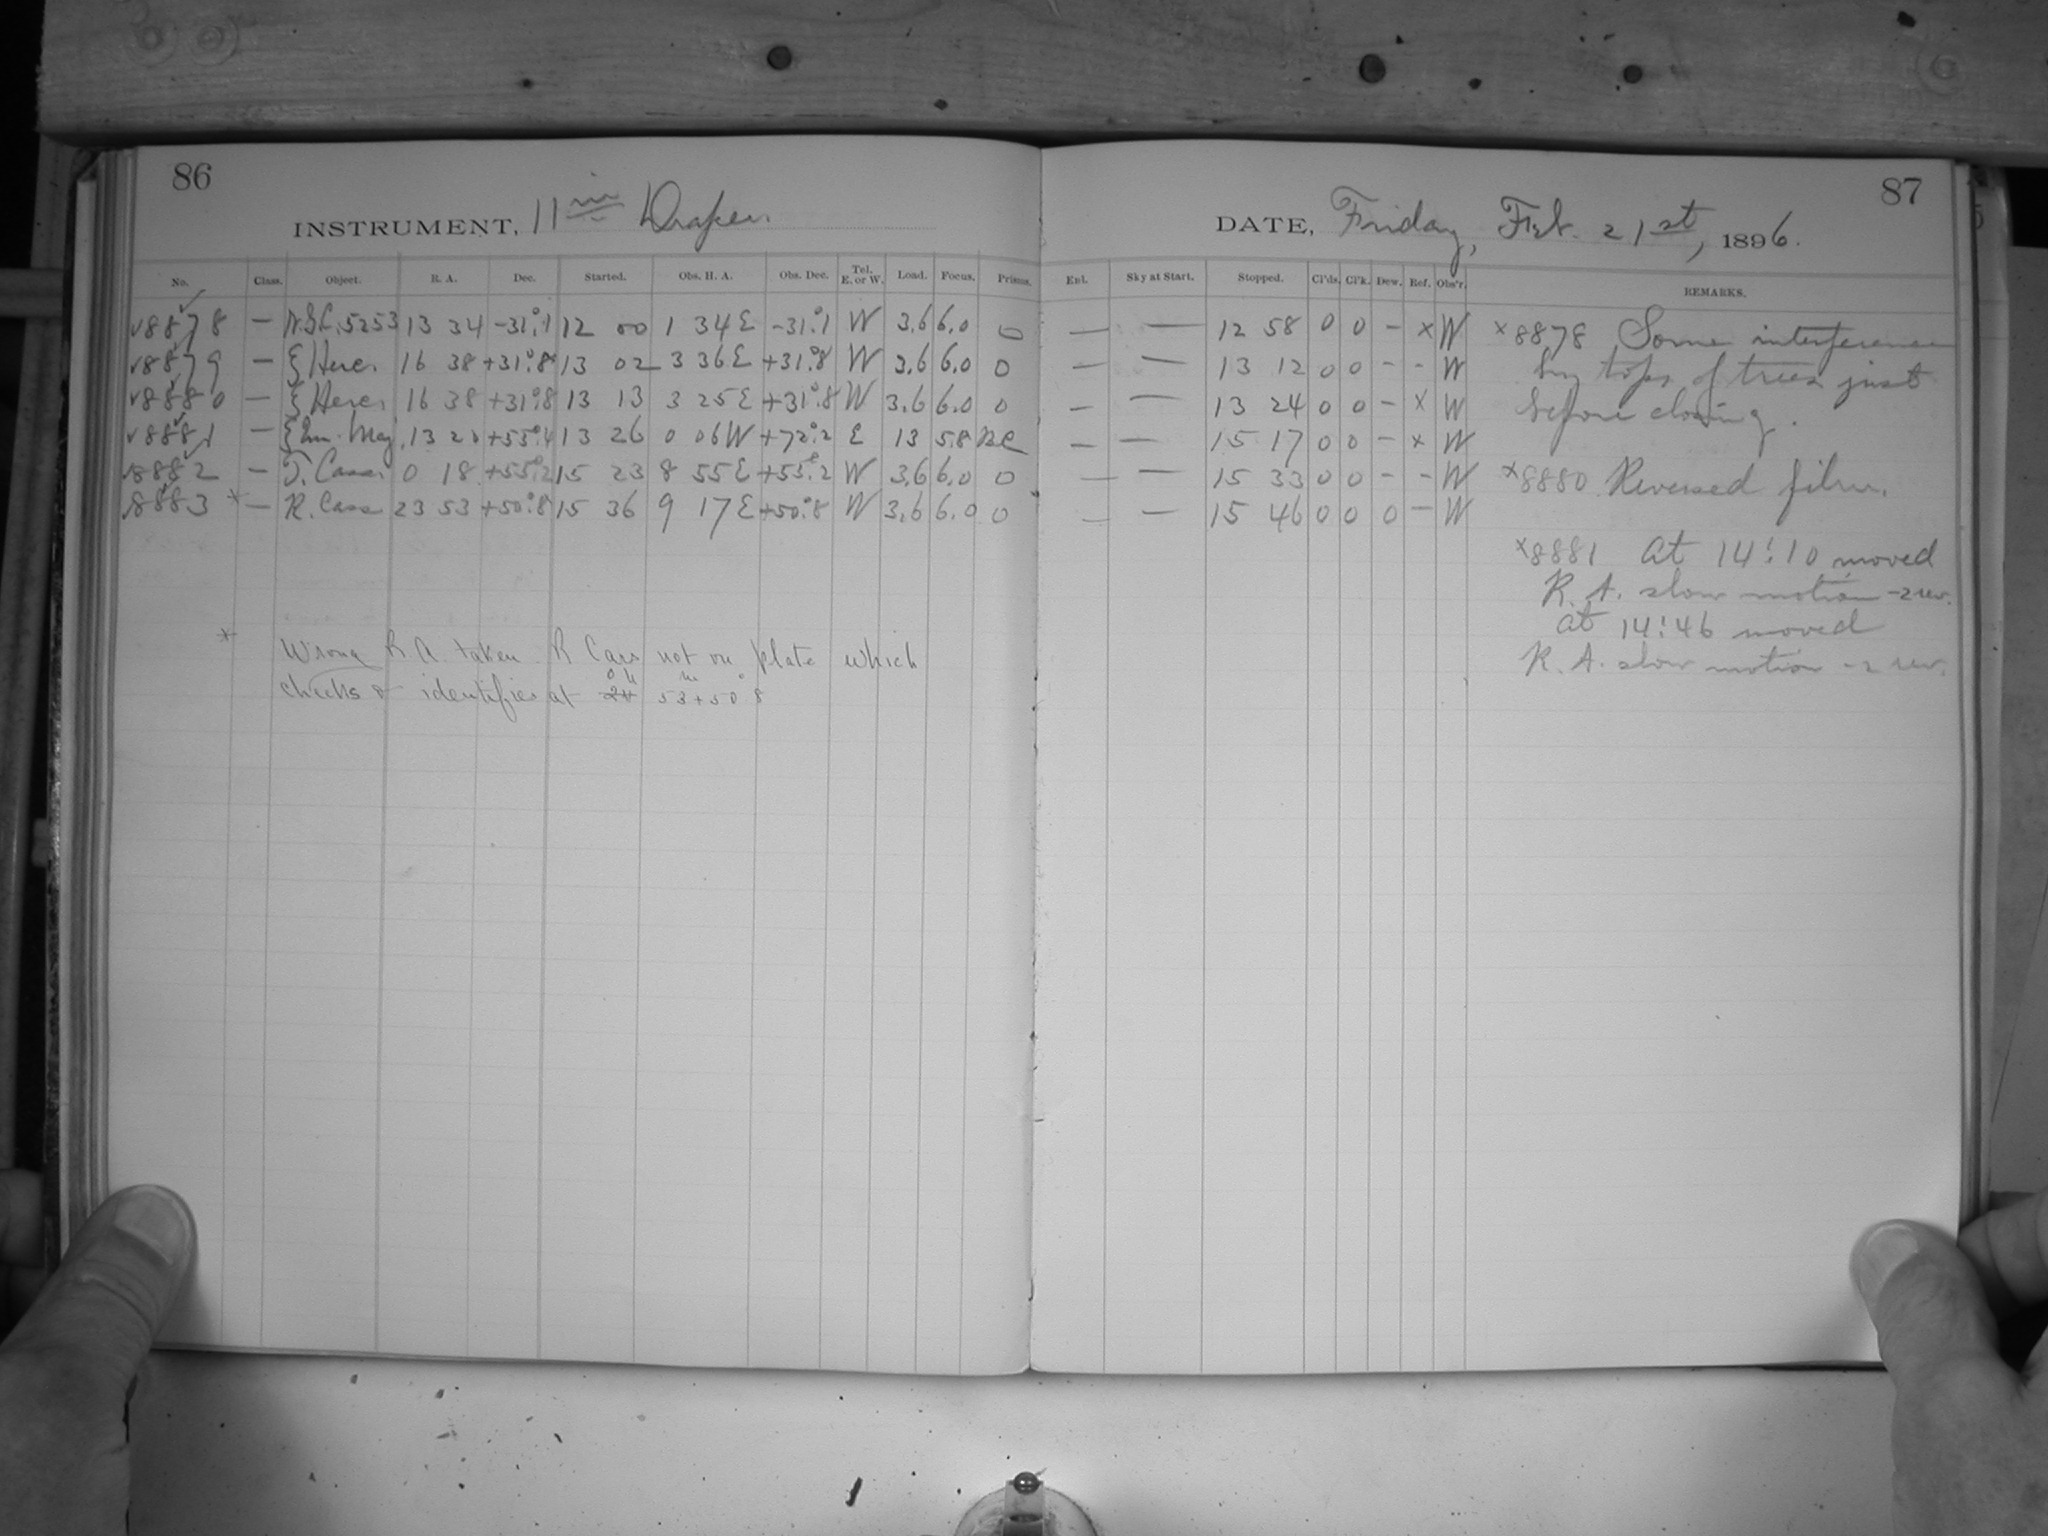 86
INSTRUMENT, 11 in Draper.
No. Class. Object. R. A. Dec. Started. Obs. H. A. Obs. Dec. Tel. E. or W. Load. Focus. Prisms.
√8878 — N.G.C. 5253 13 34 -31°.1 12 00 1 34 E -31°.1 W 3.6 6.0 0
√8879 — ξ Herc. 16 38 +31°.8 13 02 3 36 E +31°.8 W 3.6 6.0 0
√8880 — ξ Herc. 16 38 +31°.8 13 13 3 25 E +31°.8 W 3.6 6.0 0
√8881 — ξ Ur. Maj. 13 20 +55°.4 13 26 0 06 W +72°.2 E 13 5.8
√8882 — T. Cass. 0 18 +55°.2 15 23 8 55 E +55°.2 W 3.6 6.0 0
√8883 * — R. Cass 23 53 +50°.8 15 36 9 17 E +50°.8 W 3.6 6.0 0
* Wrong R. A. taken R Cass not on plate which
checks & identifies at 0h 53m +50°8
87
DATE, Friday, Feb. 21st, 1896.
Enl. Sky at Start. Stopped. Cl'ds. Cl'k. Dew. Ref. Obs'r. REMARKS.
— — 12 58 0 0 - × W
— — 13 12 0 0 - - W
— — 13 24 0 0 - × W
— — 15 17 0 0 - × W
— — 15 33 0 0 - - W
— — 15 46 0 0 0 - W
×8878 Some interference
by tops of trees just
before closing.
×8880 Reversed film.
×8881 At 14:10 moved
R. A. slow motion -2 rev.
at 14:46 moved
R. A. slow motion -2 rev.